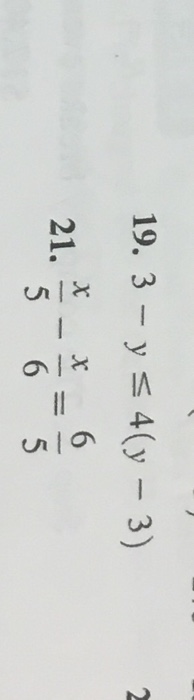 19. 3 − y ≤ 4(y − 3)
21. x/5 − x/6 = 6/5
2